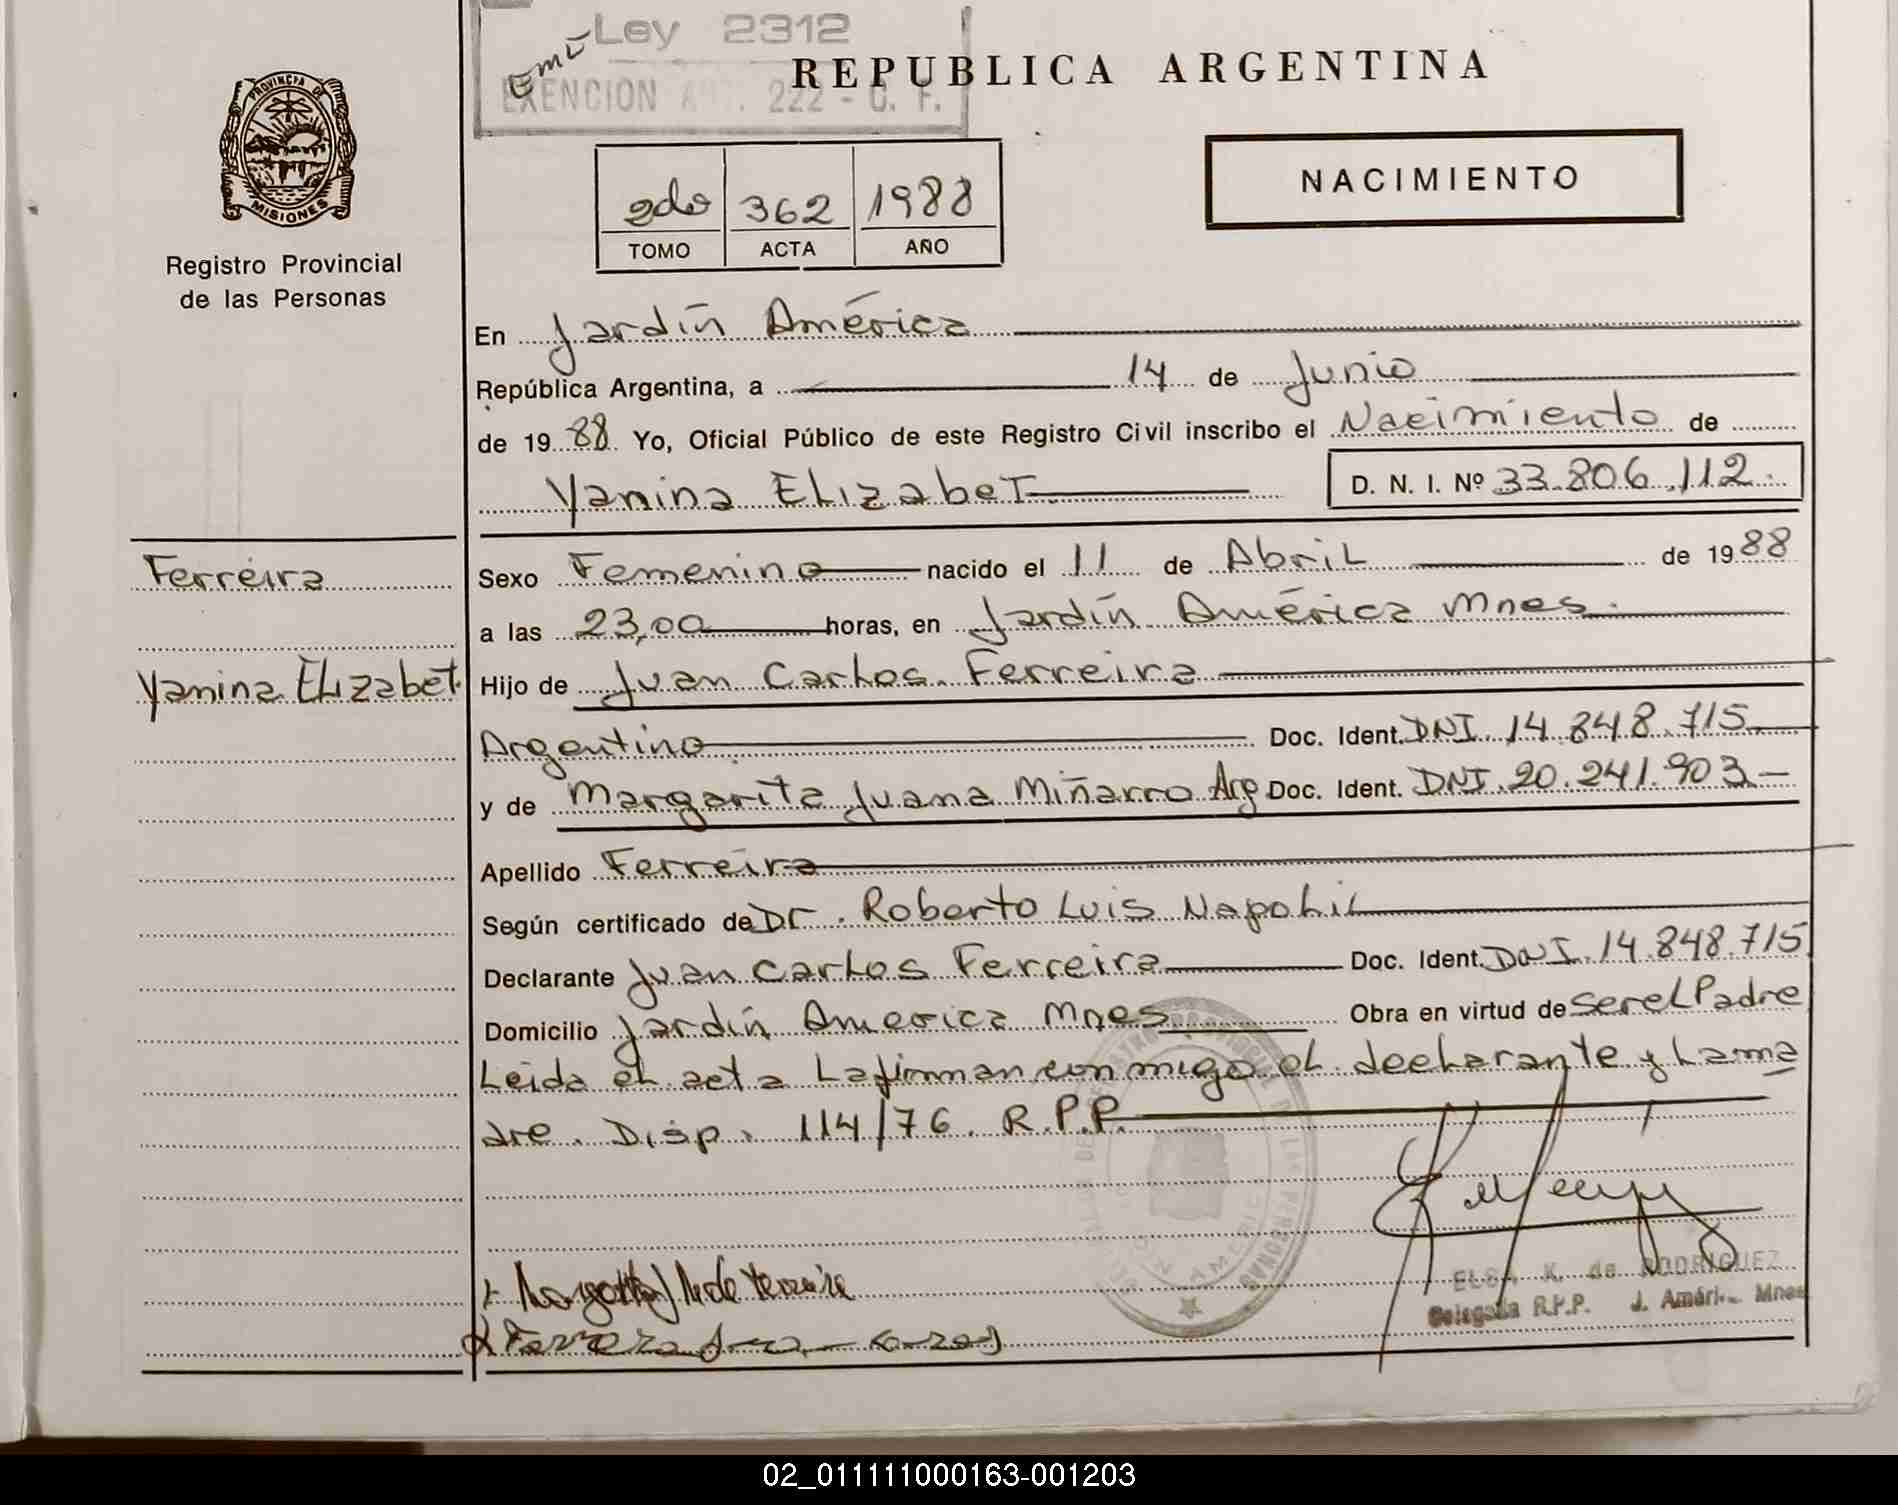 Ley 2312
Emú
EXENCION ART. 222 - C. F.
REPUBLICA ARGENTINA
PROVINCIA DE
MISIONES
Registro Provincial
de las Personas
2do 362 1988
TOMO ACTA AÑO
NACIMIENTO
En Jardín América
República Argentina, a 14 de Junio
de 19 88 Yo, Oficial Público de este Registro Civil inscribo el Nacimiento de
Yanina Elizabet D. N. I. Nº 33.806.112.
Ferreira
Yanina Elizabet.
Sexo Femenino nacido el 11 de Abril de 19 88
a las 23,00 horas, en Jardín América Mnes.
Hijo de Juan Carlos Ferreira
Argentino Doc. Ident. DNI. 14.848.715
y de Margarita Juana Miñarro Arg Doc. Ident. DNI. 20.241.903
Apellido Ferreira
Según certificado de Dr. Roberto Luis Napoli
Declarante Juan Carlos Ferreira Doc. Ident. DNI. 14.848.715
Domicilio Jardín America Mnes Obra en virtud de ser el Padre
Leida el acta La firman conmigo el declarante y La ma
dre. Disp. 114/76. R.P.P.
ELSA K. de RODRIGUEZ
Delegada R.P.P. J. Améri. Mnes
02_011111000163-001203